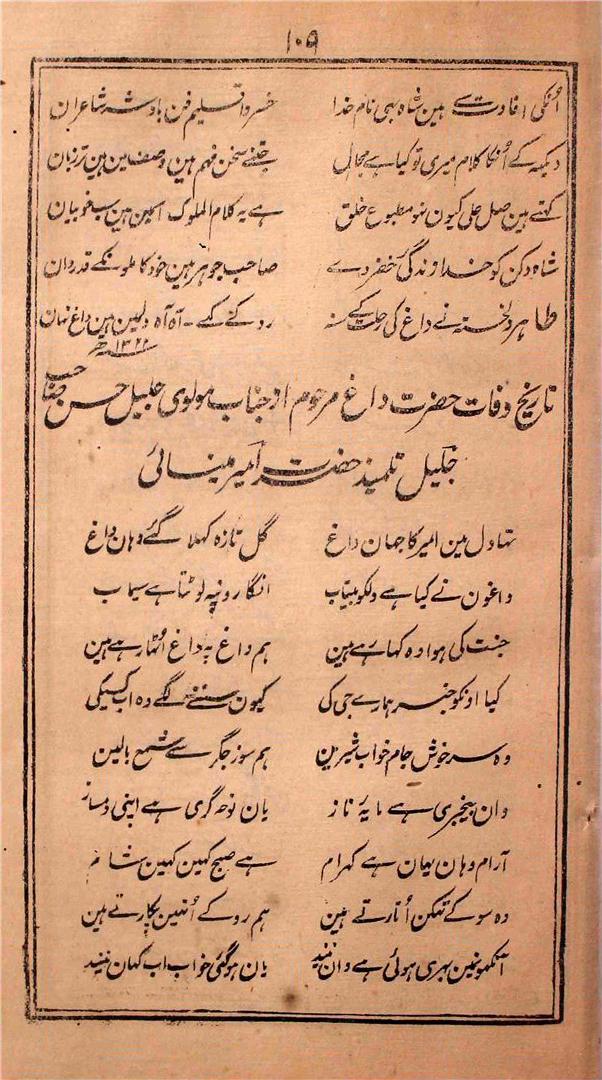 ۱۰۹
اُنکی افادت سے ہین شاہ بھی نام خدا خسرو اقلیم فن بادشہ شاعران
دیکہہ کے اُنکا کلام میری تو کیا ہے مجال جتنے سخن فہم ہین وصف مین ہین تر زبان
کہتے ہین صل علیٰ کیون نہو مطبوع خلق ہے یہ کلام الملوک اسمین ہین سب خوبیان
شاہ دکن کو خدا زندگیٔ خضر دے صاحب جوہر ہین خود کاملونکے قدردان
طاہر دلخستہ نے داغ کی رحلت کے سنہ رو کے کہے۔ آہ آہ دلمین ہین داغ نہان
۱۳۲۲ھ
تاریخ وفات حضرت داغ مرحوم از جناب مولوی جلیل حسن صاحب
جلیل تلمیذ حضرت امیر مینائی
تہا دل مین امیر کا جہان داغ گل تازہ کہلا گئے وہان داغ
داغون نے کیا ہے دلکو بیتاب انگارونپہ لوٹتا ہے سیماب
جنت کی ہوا وہ کہا رہے ہین ہم داغ پہ داغ اُٹہا رہے ہین
کیا اونکو خبر ہمارے جی کی کیون سننے لگے وہ اب کسیکی
وہ سرخوش جام خواب شیرین ہم سوز جگر سے شمع بالین
وان بیخبری ہے مایۂ ناز یان نوحہ گری ہے اپنی دمساز
آرام وہان یہان ہے کہرام ہے صبح کہین کہین شام
وہ سو کے تہکن اُتارتے ہین ہم رو کے اُنہین پکارتے ہین
آنکھونمین بہری ہوئی ہے وان نیند یان ہوگئی خواب اب کہان نیند